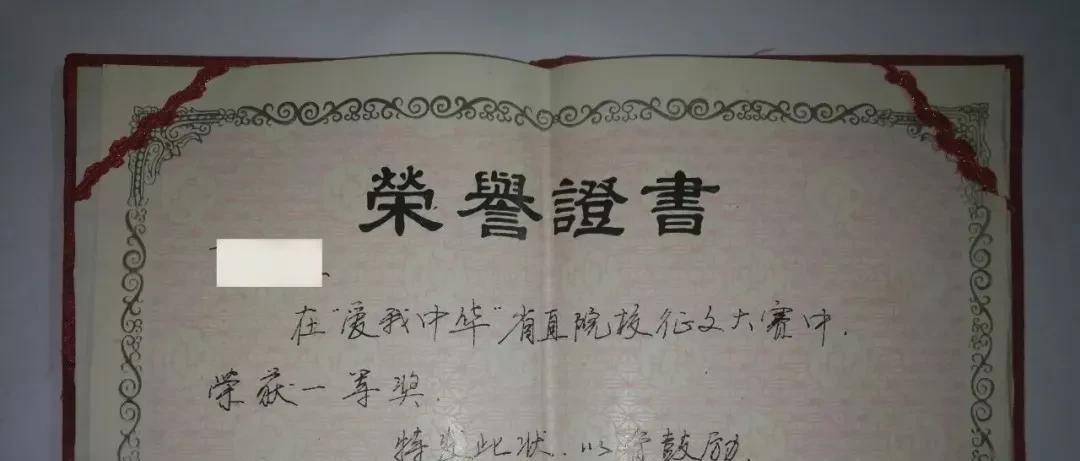 榮譽證書
在"爱我中华"省直院校征文大赛中.
荣获一等奖.
特发此状.以资鼓励.